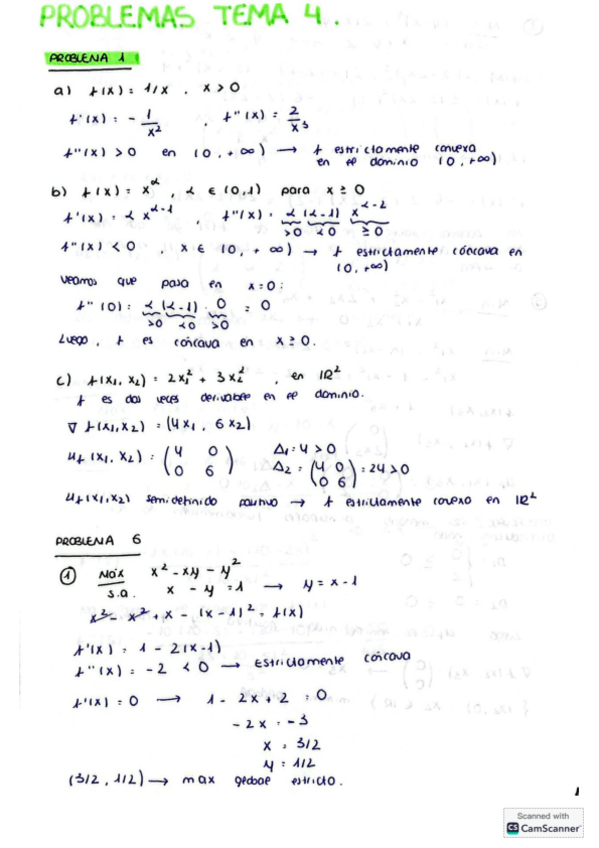 PROBLEMAS TEMA 4.
PROBLEMA 1
a) f(x) = 1/x , x > 0
f'(x) = - 1/x² , f''(x) = 2/x³
f''(x) > 0 en (0, +∞) → f estrictamente convexa en el dominio (0, +∞)
b) f(x) = x^α , α ∈ (0,1) para x ≥ 0
f'(x) = α x^(α-1) , f''(x) = α (α-1) x^(α-2)
>0 <0 ≥0
f''(x) < 0 , x ∈ (0, +∞) → f estrictamente cóncava en (0, +∞)
Veamos que pasa en x=0:
f''(0) = α (α-1) · 0 = 0
>0 <0 >0
Luego, f es cóncava en x ≥ 0.
c) f(x₁, x₂) = 2x₁² + 3x₂² , en IR²
f es dos veces derivable en el dominio.
∇f(x₁,x₂) = (4x₁, 6x₂)
Hf(x₁, x₂) = (4 0 / 0 6) Δ₁ = 4 > 0
Δ₂ = (4 0 / 0 6) = 24 > 0
Hf(x₁,x₂) semidefinido positivo → f estrictamente convexo en IR²
PROBLEMA 6
① Máx x² - xy - y²
s.a. x - y = 1 → y = x - 1
x² - x² + x - (x-1)² = f(x)
f'(x) = 1 - 2(x-1)
f''(x) = -2 < 0 → Estrictamente cóncava
f'(x) = 0 → 1 - 2x + 2 = 0
-2x = -3
x = 3/2
y = 1/2
(3/2, 1/2) → max global estricto.
1
Scanned with
CS CamScanner